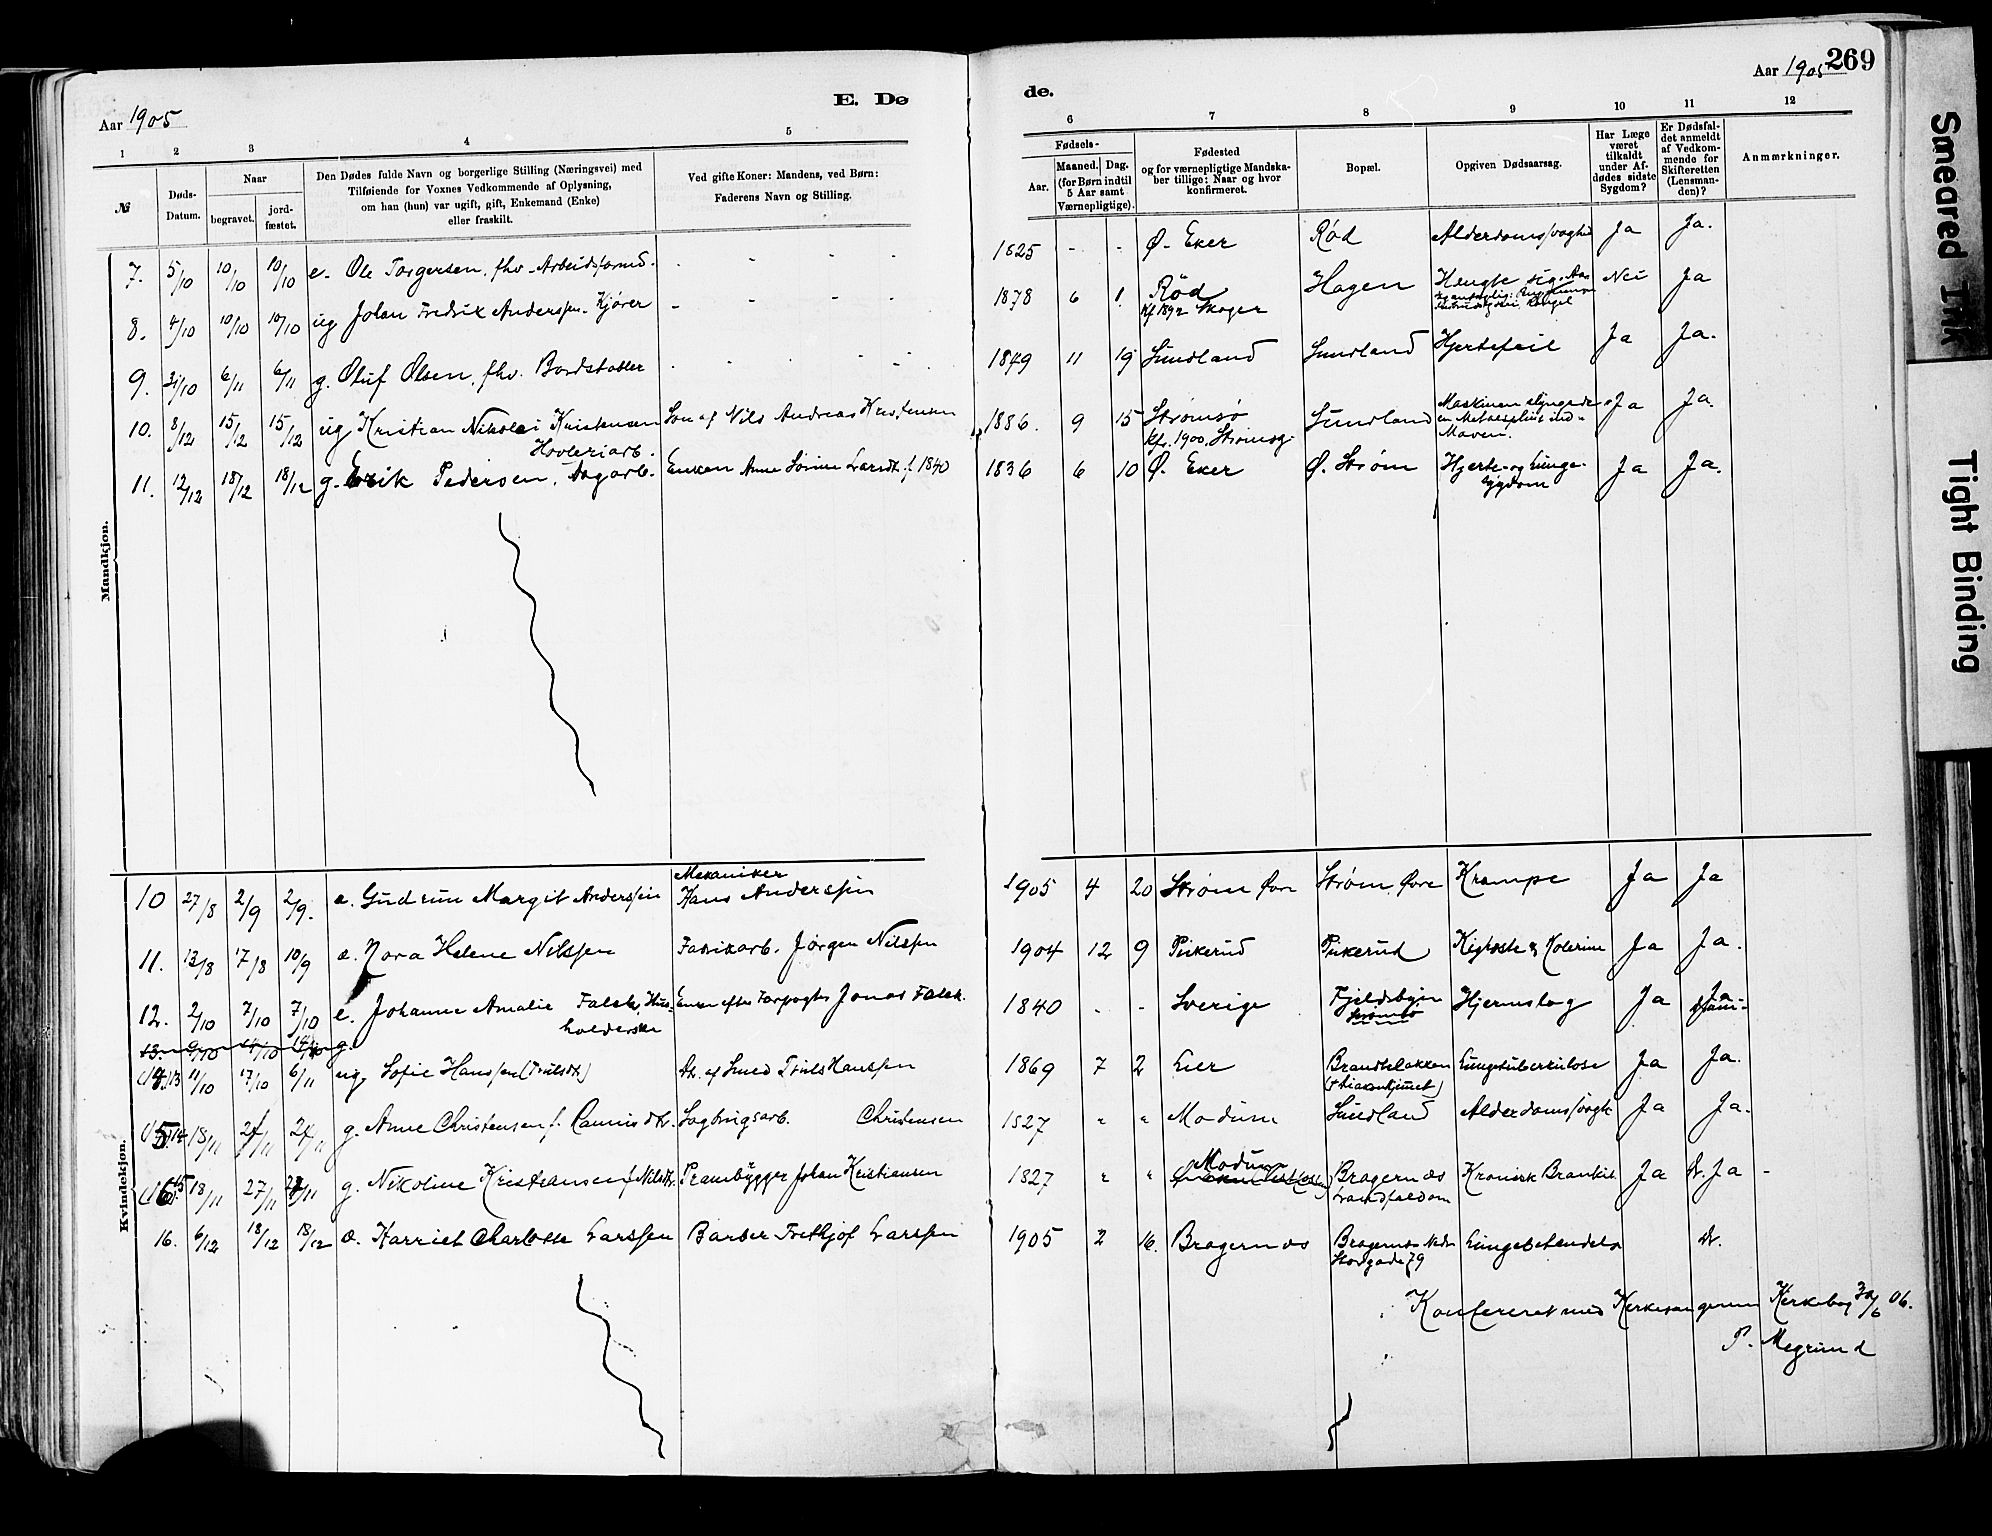 Aar 1905
E. Dø
1 2 3 4 5
№
Døds-Datum.
Naar
begravet.
jord-fæstet.
Den Dødes fulde Navn og borgerlige Stilling (Næringsvei) med
Tilføiende for Voxnes Vedkommende af Oplysning,
om han (hun) var ugift, gift, Enkemand (Enke)
eller fraskilt.
Ved gifte Koner: Mandens, ved Børn:
Faderens Navn og Stilling.
de.
Aar 1905
269
6 7 8 9 10 11 12
Fødsels-
Aar.
Maaned.
Dag.
(for Børn indtil
5 Aar samt
Værnepligtige).
Fødested
og for værnepligtige Mandska-
ber tillige: Naar og hvor
konfirmeret.
Bopæl.
Opgiven Dødsaarsag.
Har Læge
været
tilkaldt
under Af-
dødes sidste
Sygdom?
Er Dødsfal-
det anmeldt
af Vedkom-
mende for
Skifteretten
(Lensman-
den)?
Anmærkninger.
Mandkjøn.
7. 5/10 10/10 10/10 e. Ole Torgersen, fhv. Arbeidsformd. 1825 - - Ø. Eker Rød Alderdomssvaghed Ja Ja.
8. 4/10 10/10 10/10 ug Johan Fredrik Anderssen. Kjører 1878 6 1. Rød Hagen Hængte sig. Nei Ja
Kf 1892 Skoger
9. 31/10 6/11 6/11 g. Oluf Olsen, fhv. Bordstabler 1849 11 19 Sundland Sundland Hjertefeil Ja Ja.
10. 8/12 15/12 15/12 ug Kristian Nikolai Kristensen Søn af Nils Andreas Kristensen 1886. 9 15 Strømsø Sundland Maskinen slyngede Ja Ja.
Høvleriarb. Kfr. 1900. Strømsg. en Metalsplint ind i Maven.
11. 12/12 18/12 18/12 g. Erik Pedersen, Dagarb. Enken Anne Sørine Larsdt. f. 1840 1836 6 10 Ø. Eker Ø. Strøm Hjerte- og Lunge-
sygdom Ja Ja.
Kvindekjøn.
10 27/8 2/9 2/9. a. Gudrun Margit Anderssen Mekaniker
Hans Anderssen 1905 4 20 Strøm Øvre Strøm, Øvre Krampe Ja Ja
11. 13/8 17/8 10/9 a. Nora Helene Nilssen Fabrikarb. Jørgen Nilssen 1904 12 9 Pukerud Pukerud Kighoste & Kolerine Ja Ja.
12. 2/10 7/10 7/10 e. Johanne Amalie Falck, Hus-
holderske Enken efter Jonas Falck. 1840 - - Sverige Fjeldsbyen
Strømsø Hjerneslag Ja Ja
13. 9/10 14/10 14/10 g.
13 11/10 17/10 6/11 ug, Sofie Hanssen (Trulsdt.) Dt. af Smed Truls Hanssen 1869 7 2 Lier Brandtbakken Lungetuberkulose Ja Ja.
14 18/11 24/11 24/11 g. Anne Christensen f. Sagbrugsarb. Christensen 1827 " " Modum Sundland Alderdomssvaghed Ja Ja.
15 18/11 27/11 27/11 g. Nikoline Kristiansen f. Nilsdt. Prambygger Johan Kristiansen 1827 " " Modum Bragernæs
Landfaldøen Kronisk Bronkit. Ja Ja -
16. 6/12 18/12 18/12 a. Harriet Charlotte Larssen Barber Frithjof Larssen 1905 2 16. Bragernæs Bragernæs Nedre
Storgade 79 Lungebetændelse
Konfereret med Kirkesangerens Kirkebog 30/6 06.
P. Megrund
Smeared Ink
Tight Binding